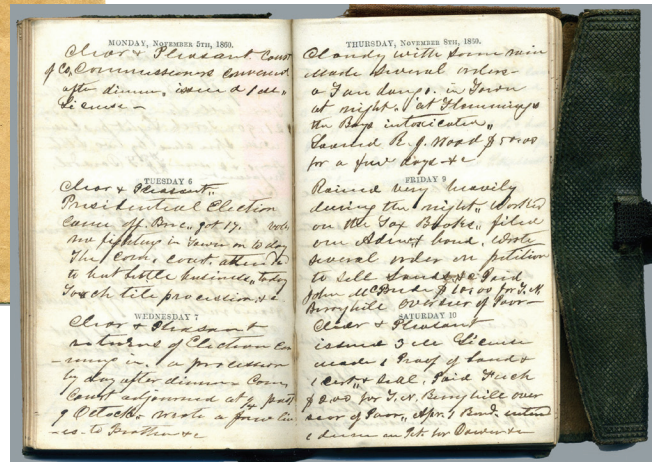 MONDAY, NOVEMBER 5TH, 1860.
Clear & Pleasant Court
of Co, Commissioners convened
after dinner, issued 1
License -
TUESDAY 6
Clear & Pleasant,,
Presidential Election
came off. got 17. vote
no fighting in Town on to day
The Com, court, attended
to but little business,, to day
Torch lite procession &c
WEDNESDAY 7
Clear & Pleasant
returns of Election com
-ming in, a procession
by day after dinner Com,
Court adjourned at 1/4 past
9 Oclock wrote a few lin
-es to Brother &c
THURSDAY, NOVEMBER 8TH, 1860.
Cloudy with some rain
Made several orders -
a Fandango. in Town
at night. at Flemmings
the Boys intoxicated,,
Loaned R. J. Wood $50.00
for a few days - &c
FRIDAY 9
Rained very heavily
during the night,, worked
on the Tax Books,, filed
one bond. wrote
several order on petition
to sell Lands &c Paid
John McBride for T. N.
Berryhill overseer of Poor -
SATURDAY 10
Clear & Pleasant
issued 3 License
made 1 Proof of Land &
1 cert,, & seal, Paid
for T. N. Berryhill over
seer of Poor,, 1 Bond